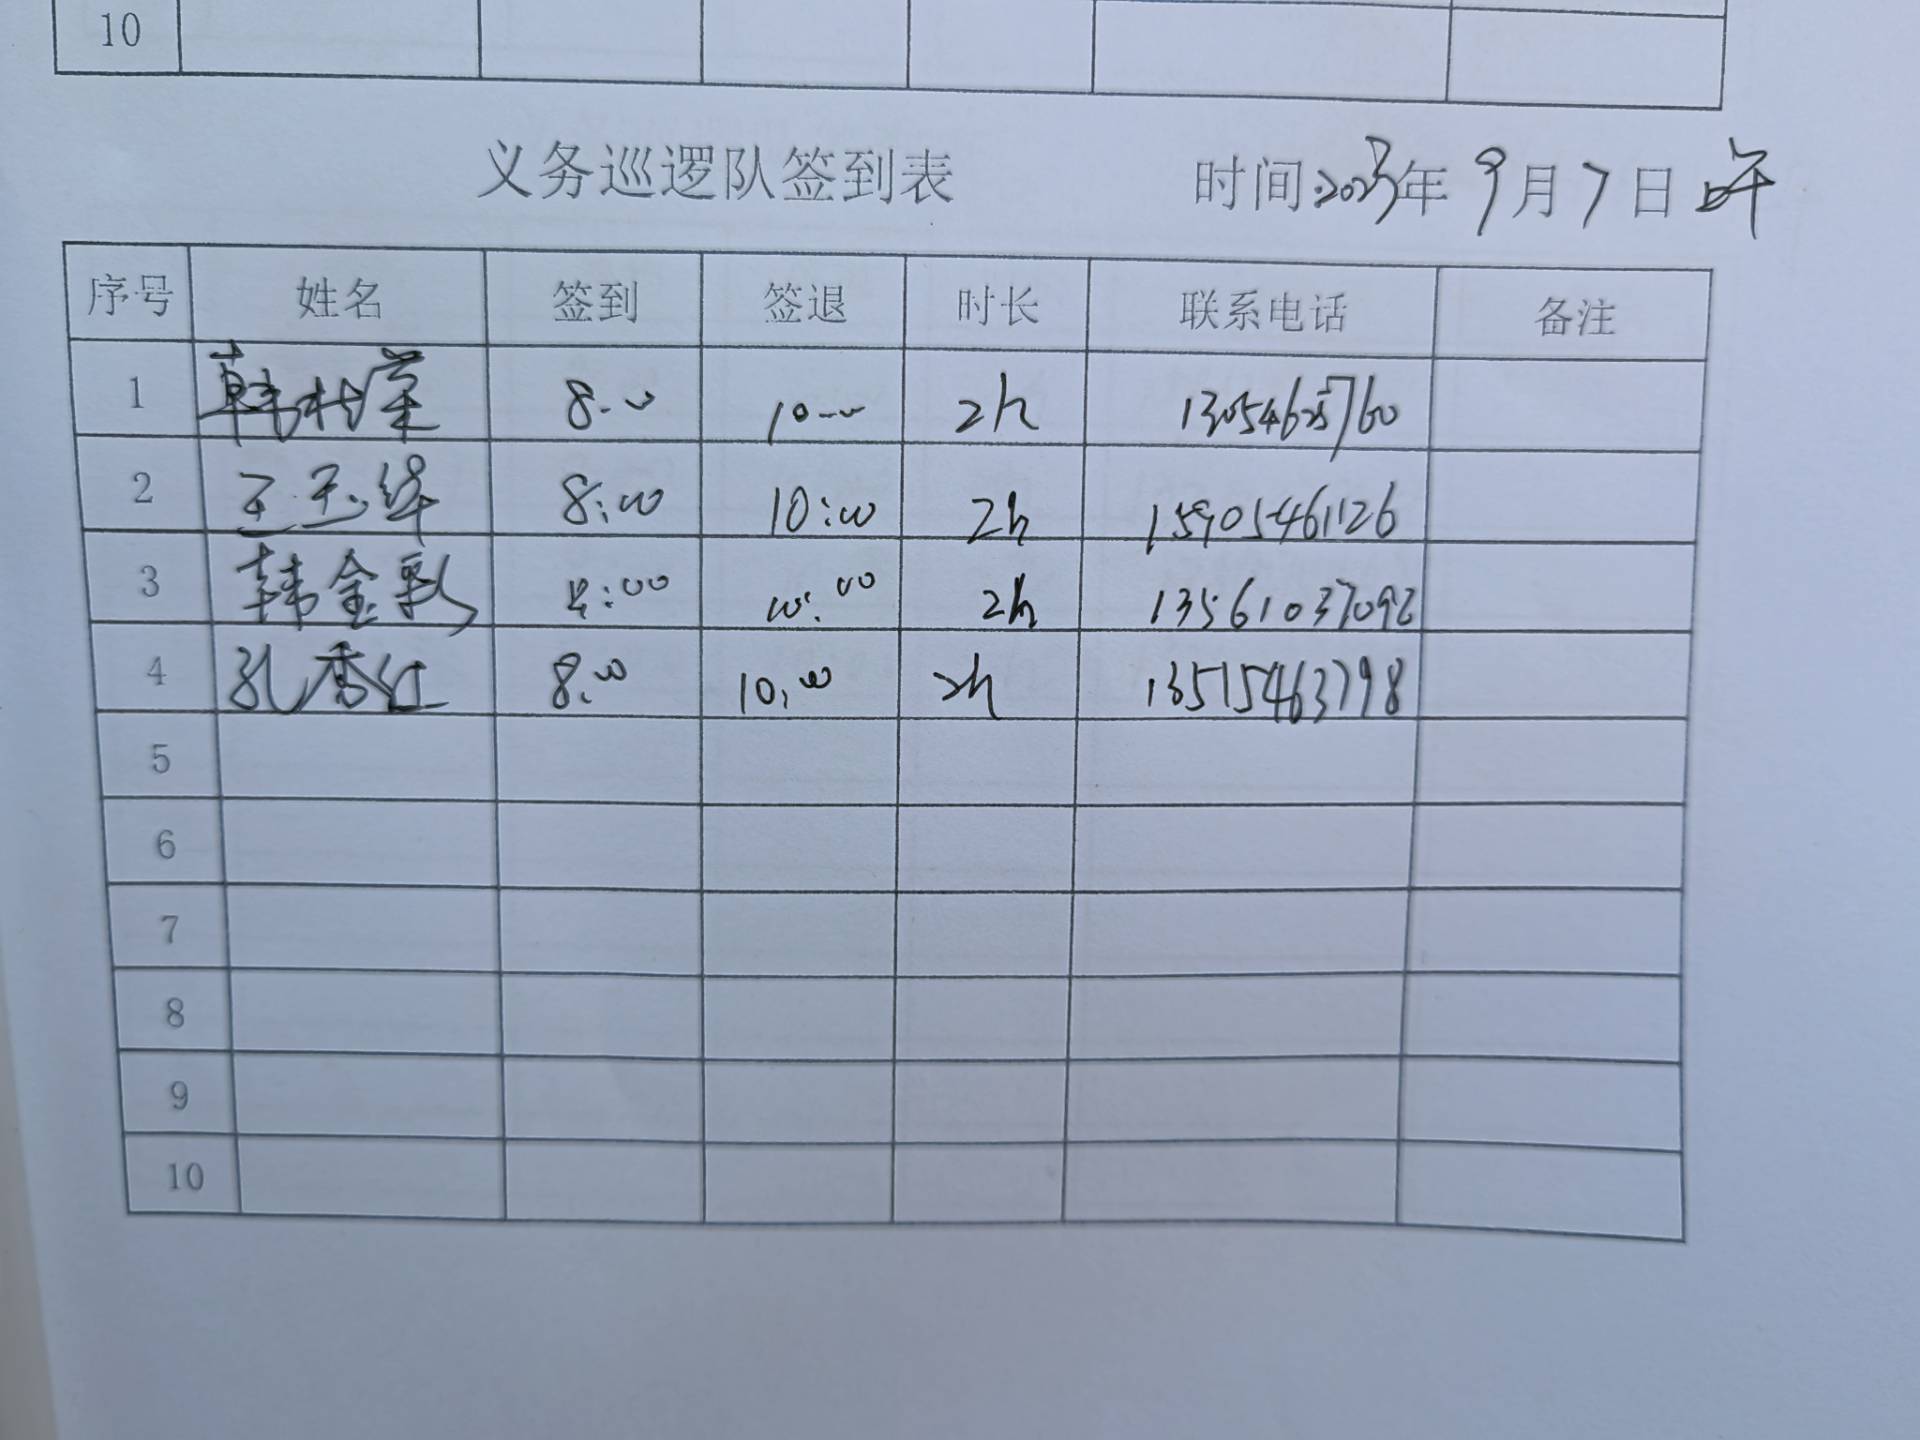 10
义务巡逻队签到表 时间:2023年9月7日 上午
序号 姓名 签到 签退 时长 联系电话 备注
1 韩桂荣 8:00 10:00 2h 13054625760
2 王玉华 8:00 10:00 2h 15905461126
3 韩金 8:00 10:00 2h 13561037092
4 孔秀红 8:00 10:00 2h 13515463798
5
6
7
8
9
10